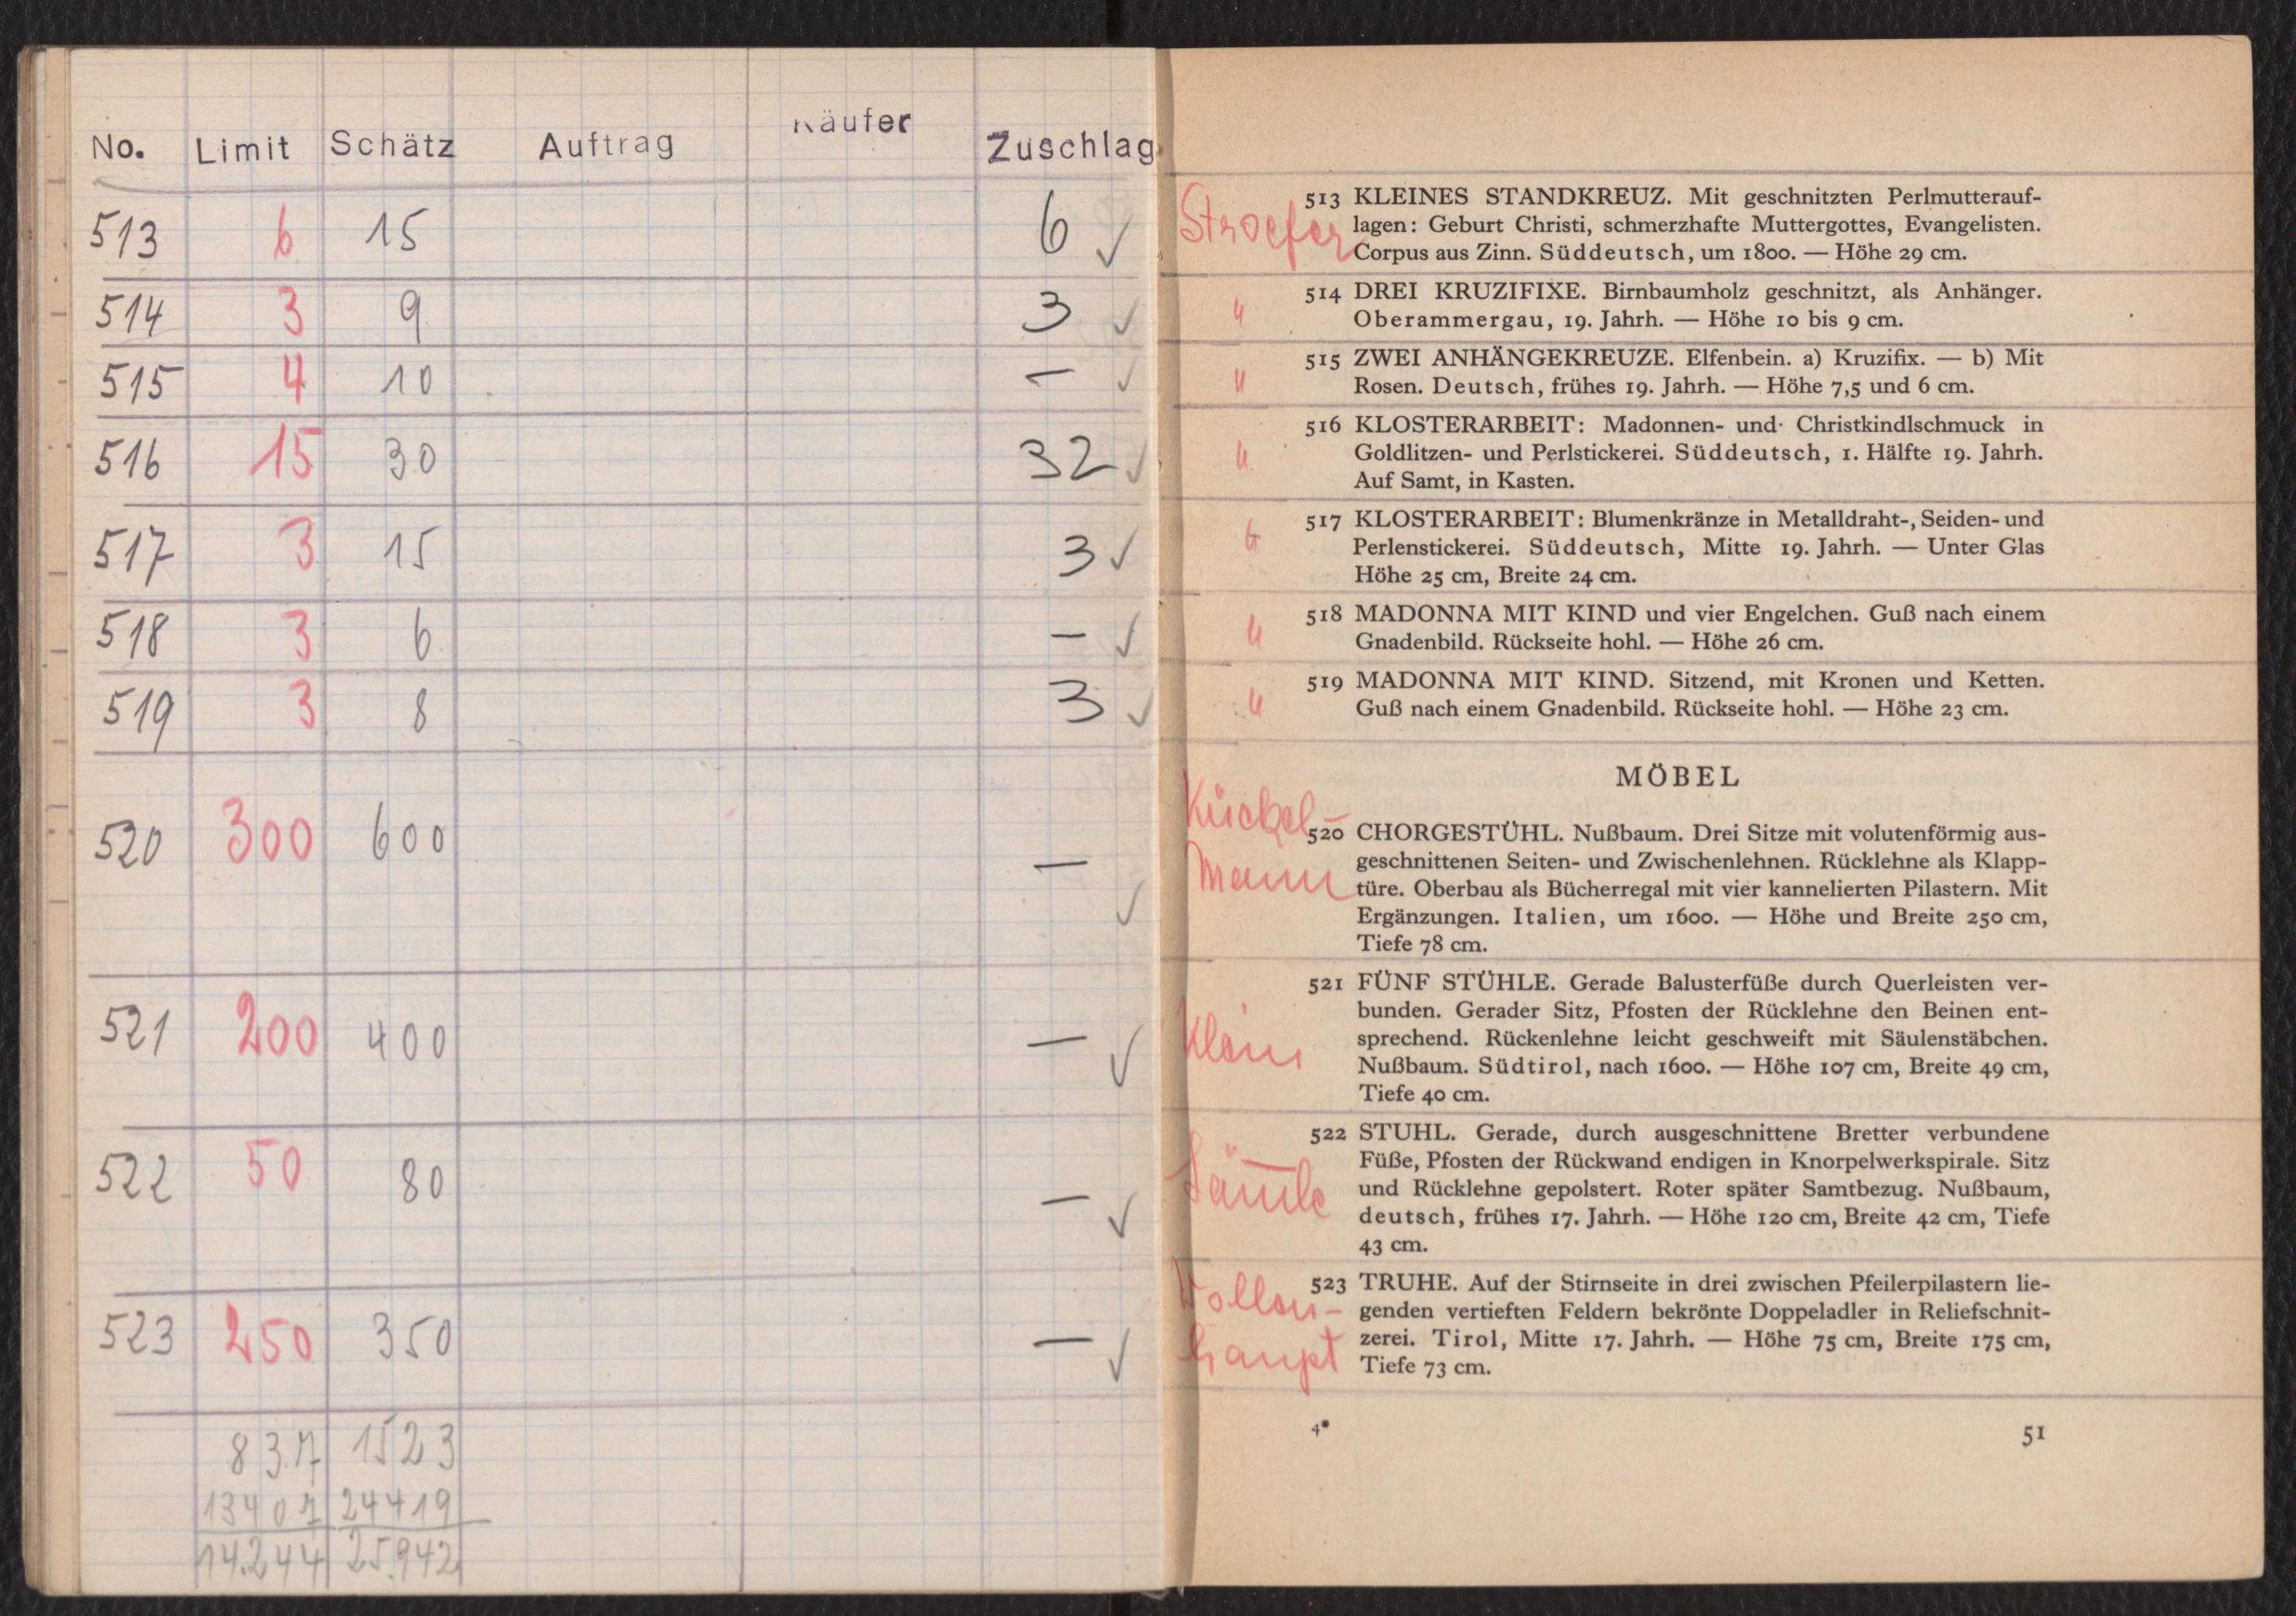 No. Limit Schätz Auftrag Käufer Zuschlag
513 6 15 6 ✓
514 3 9 3 ✓
515 4 10 — ✓
516 15 30 32 ✓
517 3 15 3 ✓
518 3 6 — ✓
519 3 8 3 ✓
520 300 600 — ✓
521 200 400 — ✓
522 50 80 — ✓
523 250 350 — ✓
837 1523
13407 24419
14.244 25942
Stroefer
513 KLEINES STANDKREUZ. Mit geschnitzten Perlmutterauf-
lagen: Geburt Christi, schmerzhafte Muttergottes, Evangelisten.
Corpus aus Zinn. Süddeutsch, um 1800. — Höhe 29 cm.
"
514 DREI KRUZIFIXE. Birnbaumholz geschnitzt, als Anhänger.
Oberammergau, 19. Jahrh. — Höhe 10 bis 9 cm.
"
515 ZWEI ANHÄNGEKREUZE. Elfenbein. a) Kruzifix. — b) Mit
Rosen. Deutsch, frühes 19. Jahrh. — Höhe 7,5 und 6 cm.
"
516 KLOSTERARBEIT: Madonnen- und Christkindlschmuck in
Goldlitzen- und Perlstickerei. Süddeutsch, 1. Hälfte 19. Jahrh.
Auf Samt, in Kasten.
"
517 KLOSTERARBEIT: Blumenkränze in Metalldraht-, Seiden- und
Perlenstickerei. Süddeutsch, Mitte 19. Jahrh. — Unter Glas
Höhe 25 cm, Breite 24 cm.
"
518 MADONNA MIT KIND und vier Engelchen. Guß nach einem
Gnadenbild. Rückseite hohl. — Höhe 26 cm.
"
519 MADONNA MIT KIND. Sitzend, mit Kronen und Ketten.
Guß nach einem Gnadenbild. Rückseite hohl. — Höhe 23 cm.
MÖBEL
Kückel-
mann
520 CHORGESTÜHL. Nußbaum. Drei Sitze mit volutenförmig aus-
geschnittenen Seiten- und Zwischenlehnen. Rücklehne als Klapp-
türe. Oberbau als Bücherregal mit vier kannelierten Pilastern. Mit
Ergänzungen. Italien, um 1600. — Höhe und Breite 250 cm,
Tiefe 78 cm.
Klein
521 FÜNF STÜHLE. Gerade Balusterfüße durch Querleisten ver-
bunden. Gerader Sitz, Pfosten der Rücklehne den Beinen ent-
sprechend. Rückenlehne leicht geschweift mit Säulenstäbchen.
Nußbaum. Südtirol, nach 1600. — Höhe 107 cm, Breite 49 cm,
Tiefe 40 cm.
522 STUHL. Gerade, durch ausgeschnittene Bretter verbundene
Füße, Pfosten der Rückwand endigen in Knorpelwerkspirale. Sitz
und Rücklehne gepolstert. Roter später Samtbezug. Nußbaum,
deutsch, frühes 17. Jahrh. — Höhe 120 cm, Breite 42 cm, Tiefe
43 cm.
523 TRUHE. Auf der Stirnseite in drei zwischen Pfeilerpilastern lie-
genden vertieften Feldern bekrönte Doppeladler in Reliefschnit-
zerei. Tirol, Mitte 17. Jahrh. — Höhe 75 cm, Breite 175 cm,
Tiefe 73 cm.
4*
51